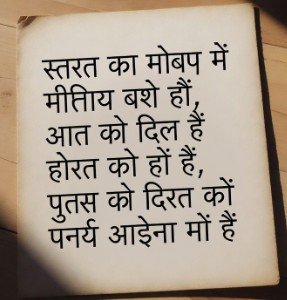 स्तरत का मोबप में
मीतिाय बशे हौं,
आत को दिल हैं
होरत को हों हैं,
पुतस को दिरत कों
पनर्य आईना मों हैं